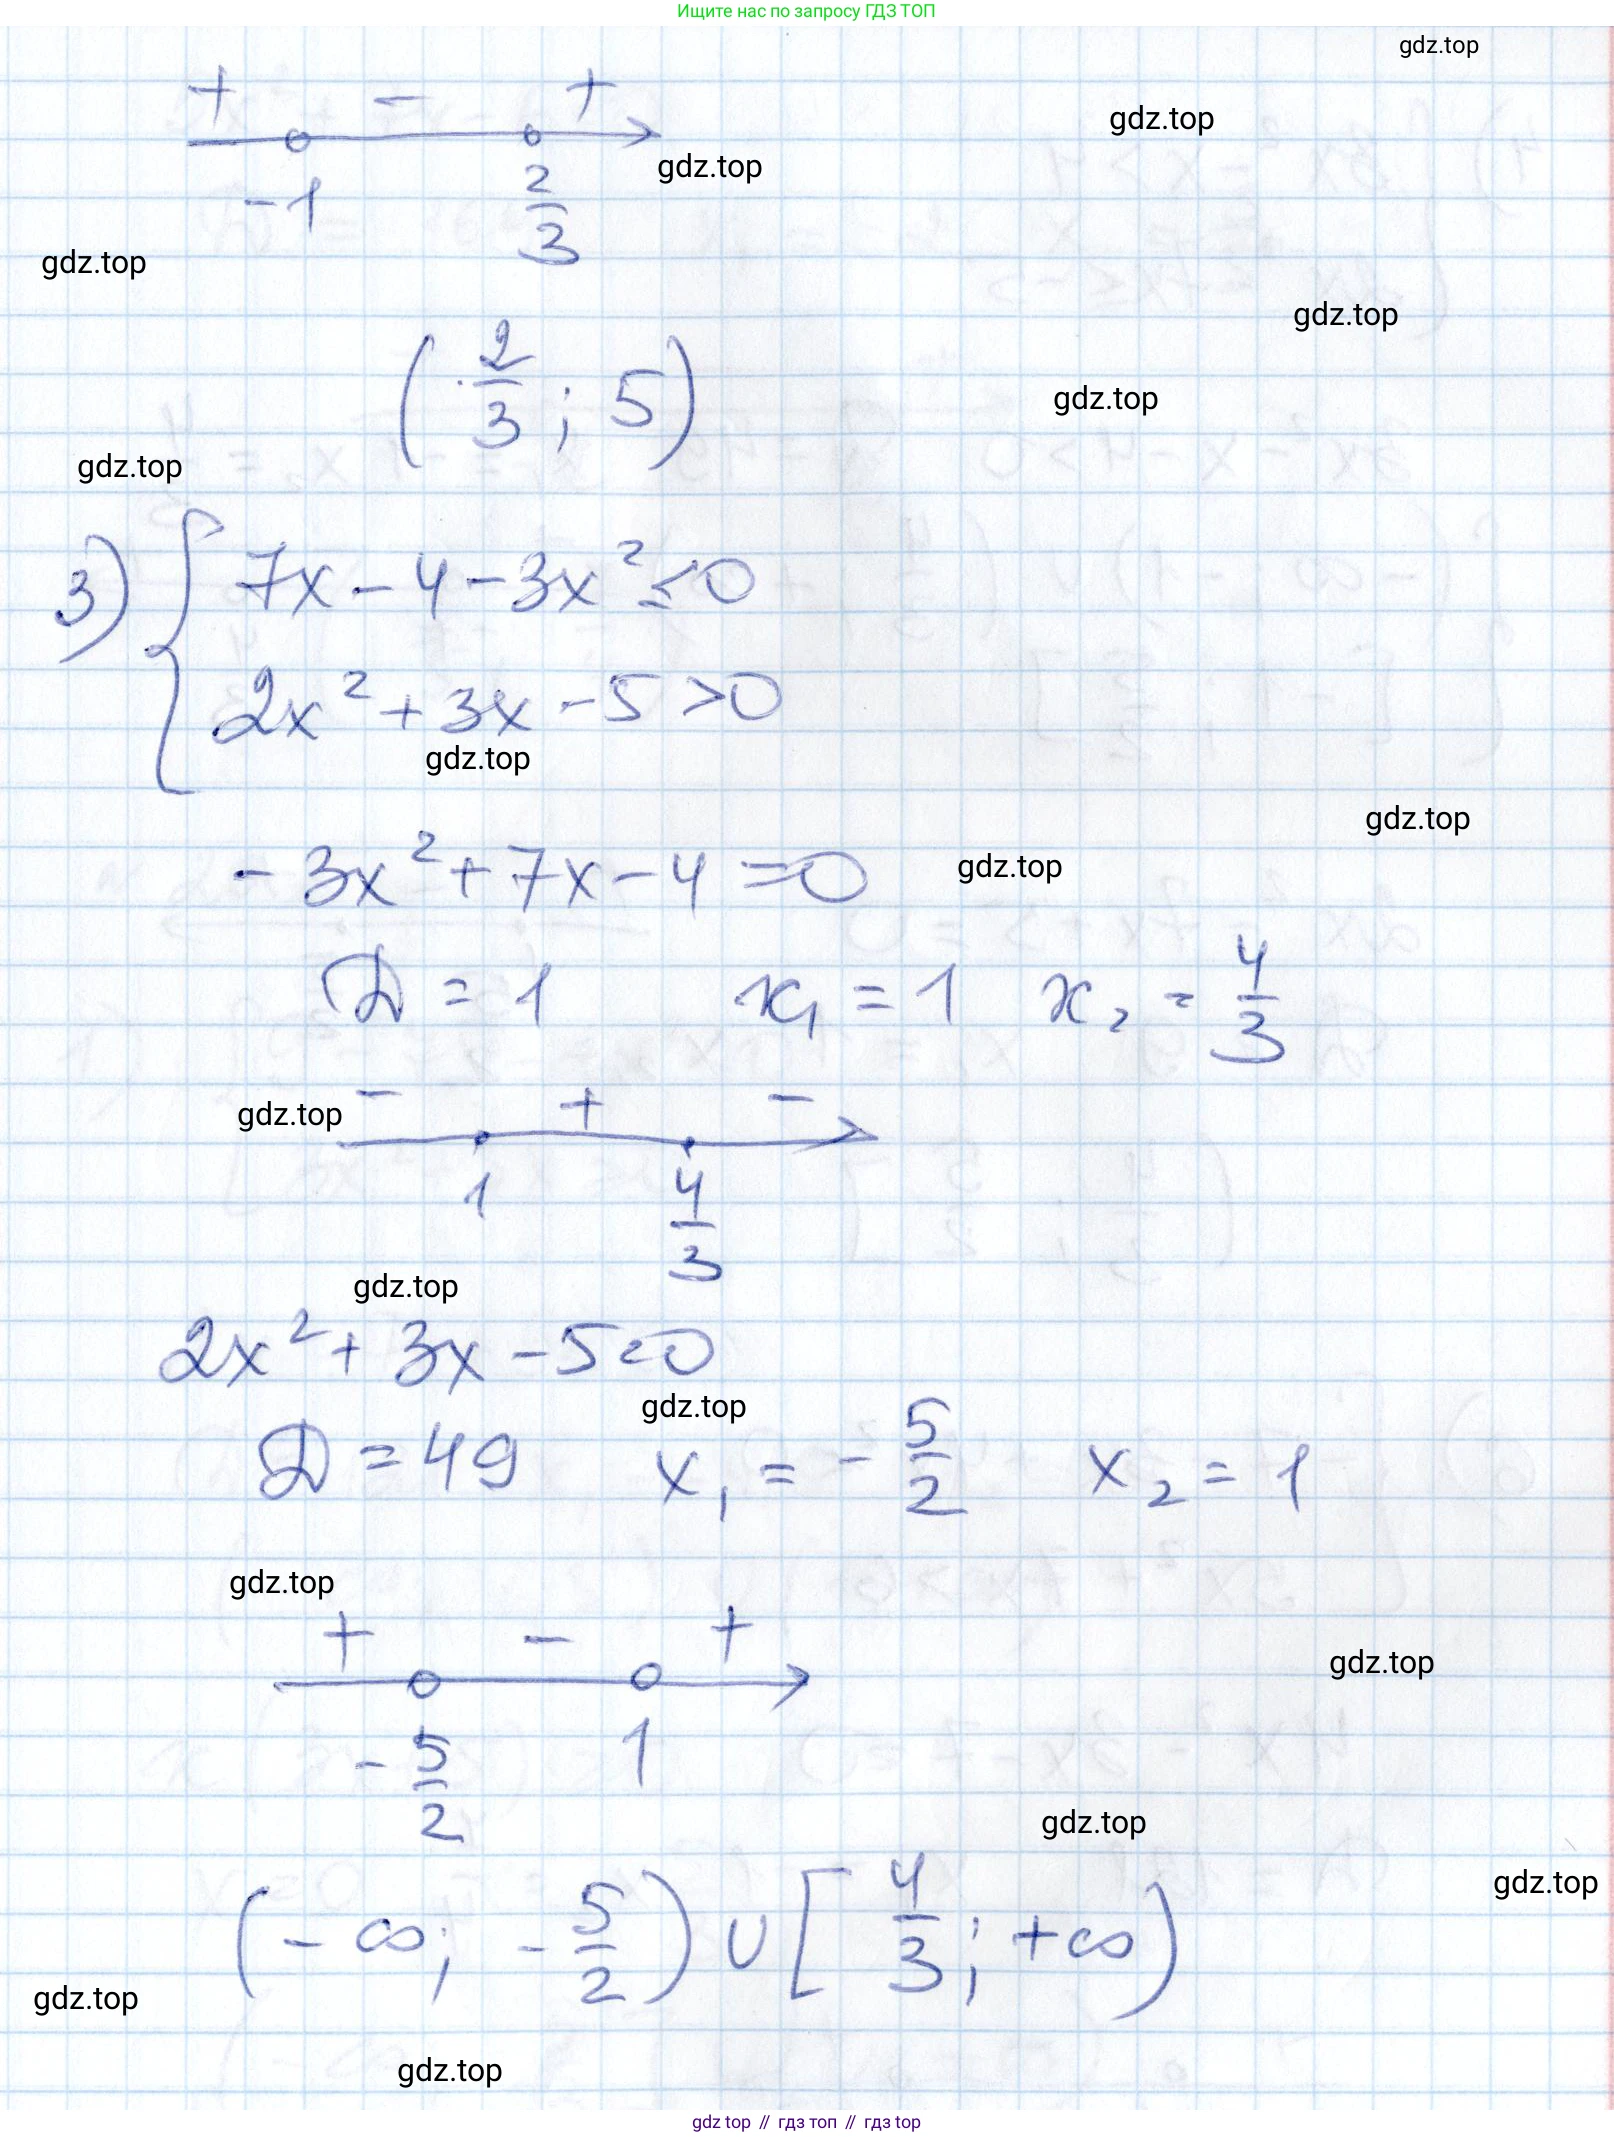 Ищите нас по запросу ГДЗ ТОП
gdz.top
+ − +
gdz.top
gdz.top
-1 2/3
gdz.top
gdz.top
(2/3; 5)
gdz.top
gdz.top
3) { 7x - 4 - 3x² ≤ 0
2x² + 3x - 5 > 0
gdz.top
gdz.top
- 3x² + 7x - 4 = 0
gdz.top
D = 1 x₁ = 1 x₂ = 4/3
− + −
gdz.top
1 4/3
gdz.top
2x² + 3x - 5 = 0
gdz.top
D = 49 x₁ = - 5/2 x₂ = 1
gdz.top
+ − +
gdz.top
- 5/2 1
gdz.top
gdz.top
(-∞; - 5/2) ∪ [4/3; +∞)
gdz.top
gdz.top
gdz top // гдз топ // гдз top